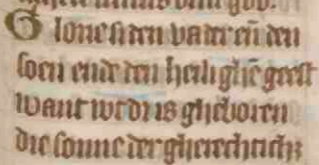 Glorie si den vader en̄ den
soen ende den heilighē geest
Want wt di is gheboren
die sonne der gherechtich